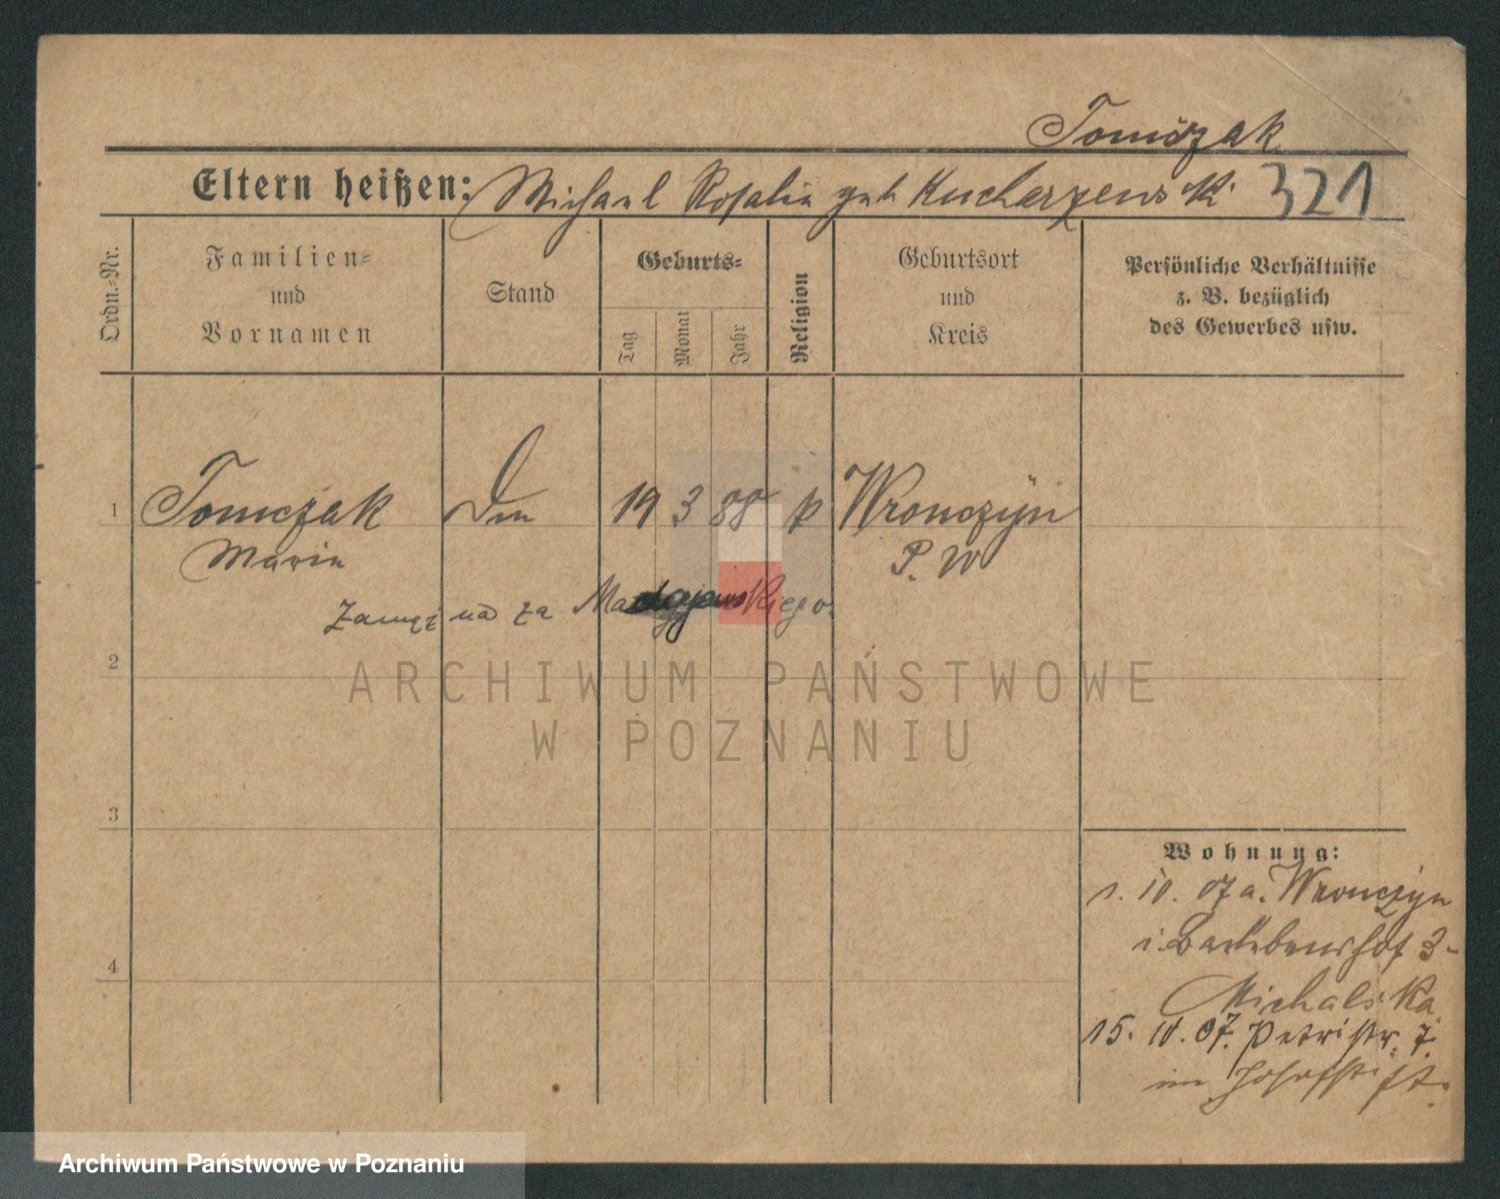 Tomczak
Eltern heißen: Michael Rosalie geb Kucharzewski 321
Ordn.-Nr.
Familien- und Vornamen
Stand
Geburts-
Tag
Monat
Jahr
Religion
Geburtsort und Kreis
Persönliche Verhältnisse z. B. bezüglich des Gewerbes usw.
1 Tomczak 19 3 88 k Wronczyn
Marie P. W
Zamężna za
2
ARCHIWUM PAŃSTWOWE
W POZNANIU
3
Wohnung:
1. 10. 07 a. Wronczyn
i. 3
4
Michalska
15. 10. 07. Petristr. 7.
im Josefstift.
Archiwum Państwowe w Poznaniu